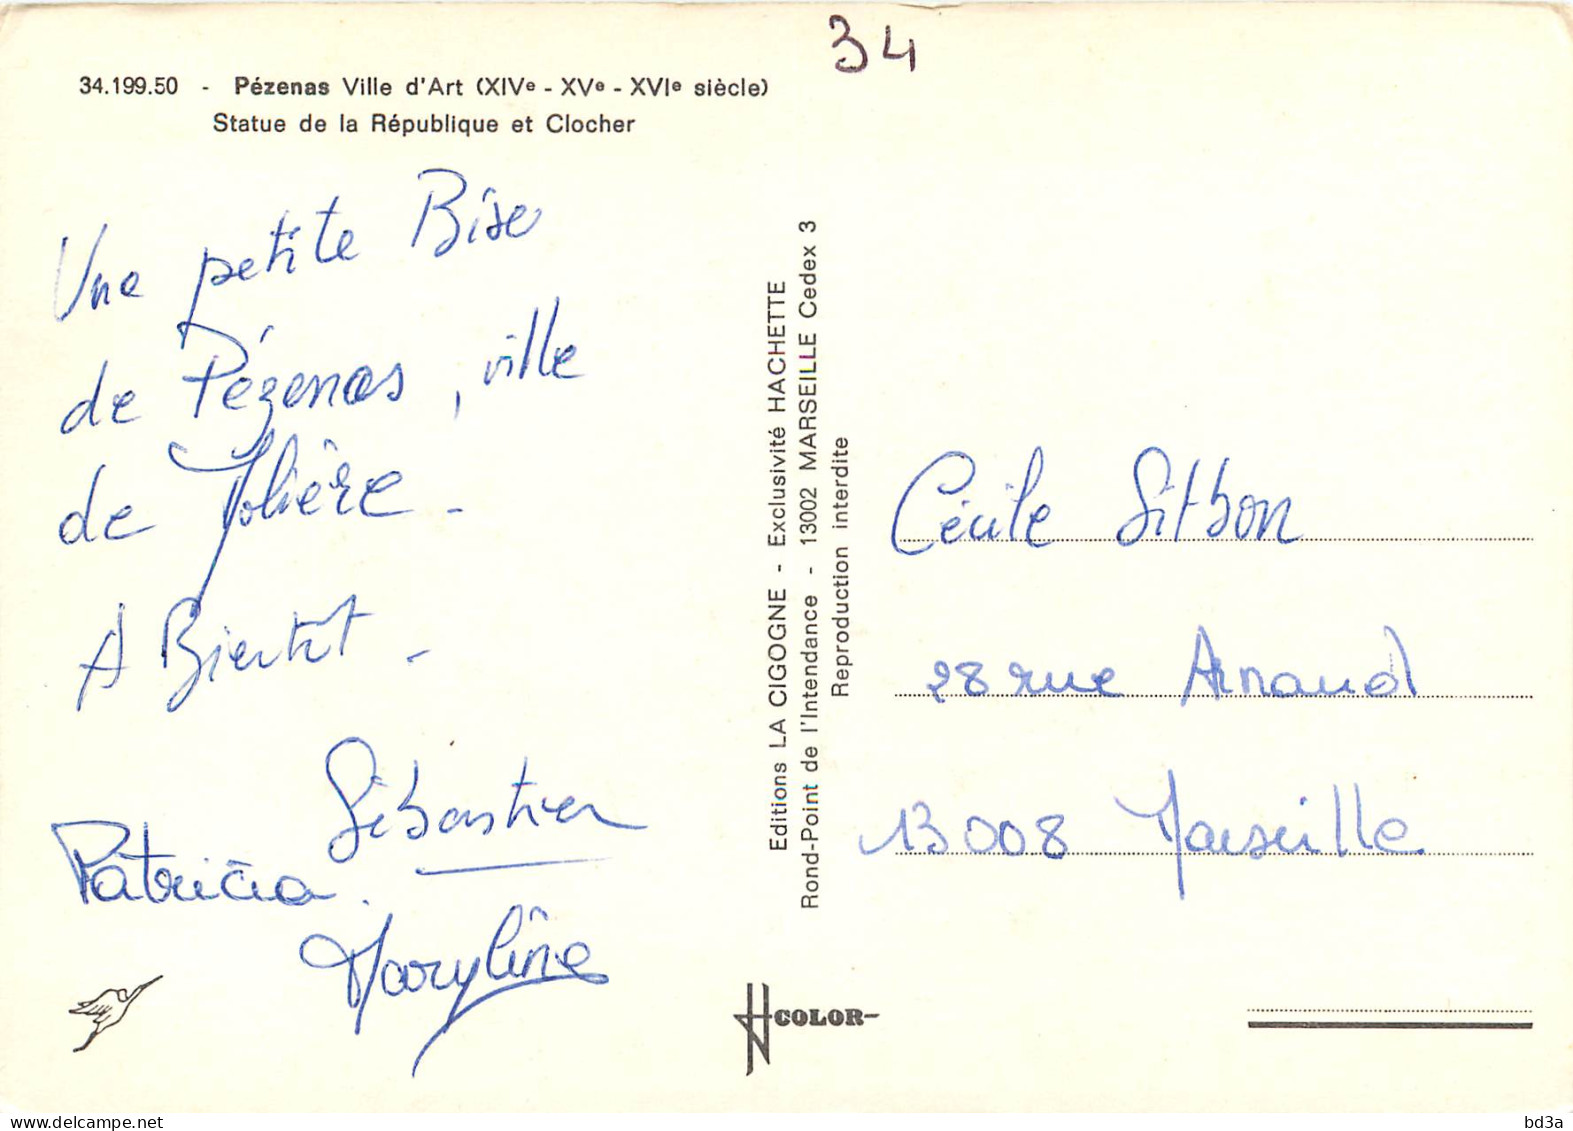 34
34.199.50 - Pézenas Ville d'Art (XIVe - XVe - XVIe siècle)
Statue de la République et Clocher
Une petite Bise
de Pézenas, ville
de Molière -
A Bientôt -
Sébastien
Patricia.
Maryline
Editions LA CIGOGNE - Exclusivité HACHETTE
Rond-Point de l'Intendance - 13002 MARSEILLE Cedex 3
Reproduction interdite
Cécile Sitbon
28 rue Arnaud
13008 Marseille
COLOR-
delcampe.net
bd3a